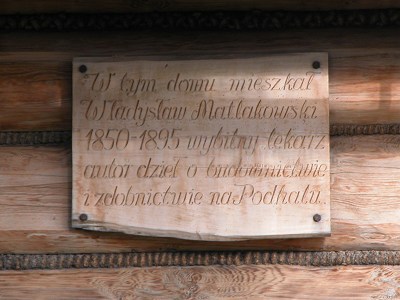 W tym domu mieszkał
Władysław Matlakowski
1850-1895 wybitny lekarz
autor dzieł o budownictwie
i zdobnictwie na Podhalu.